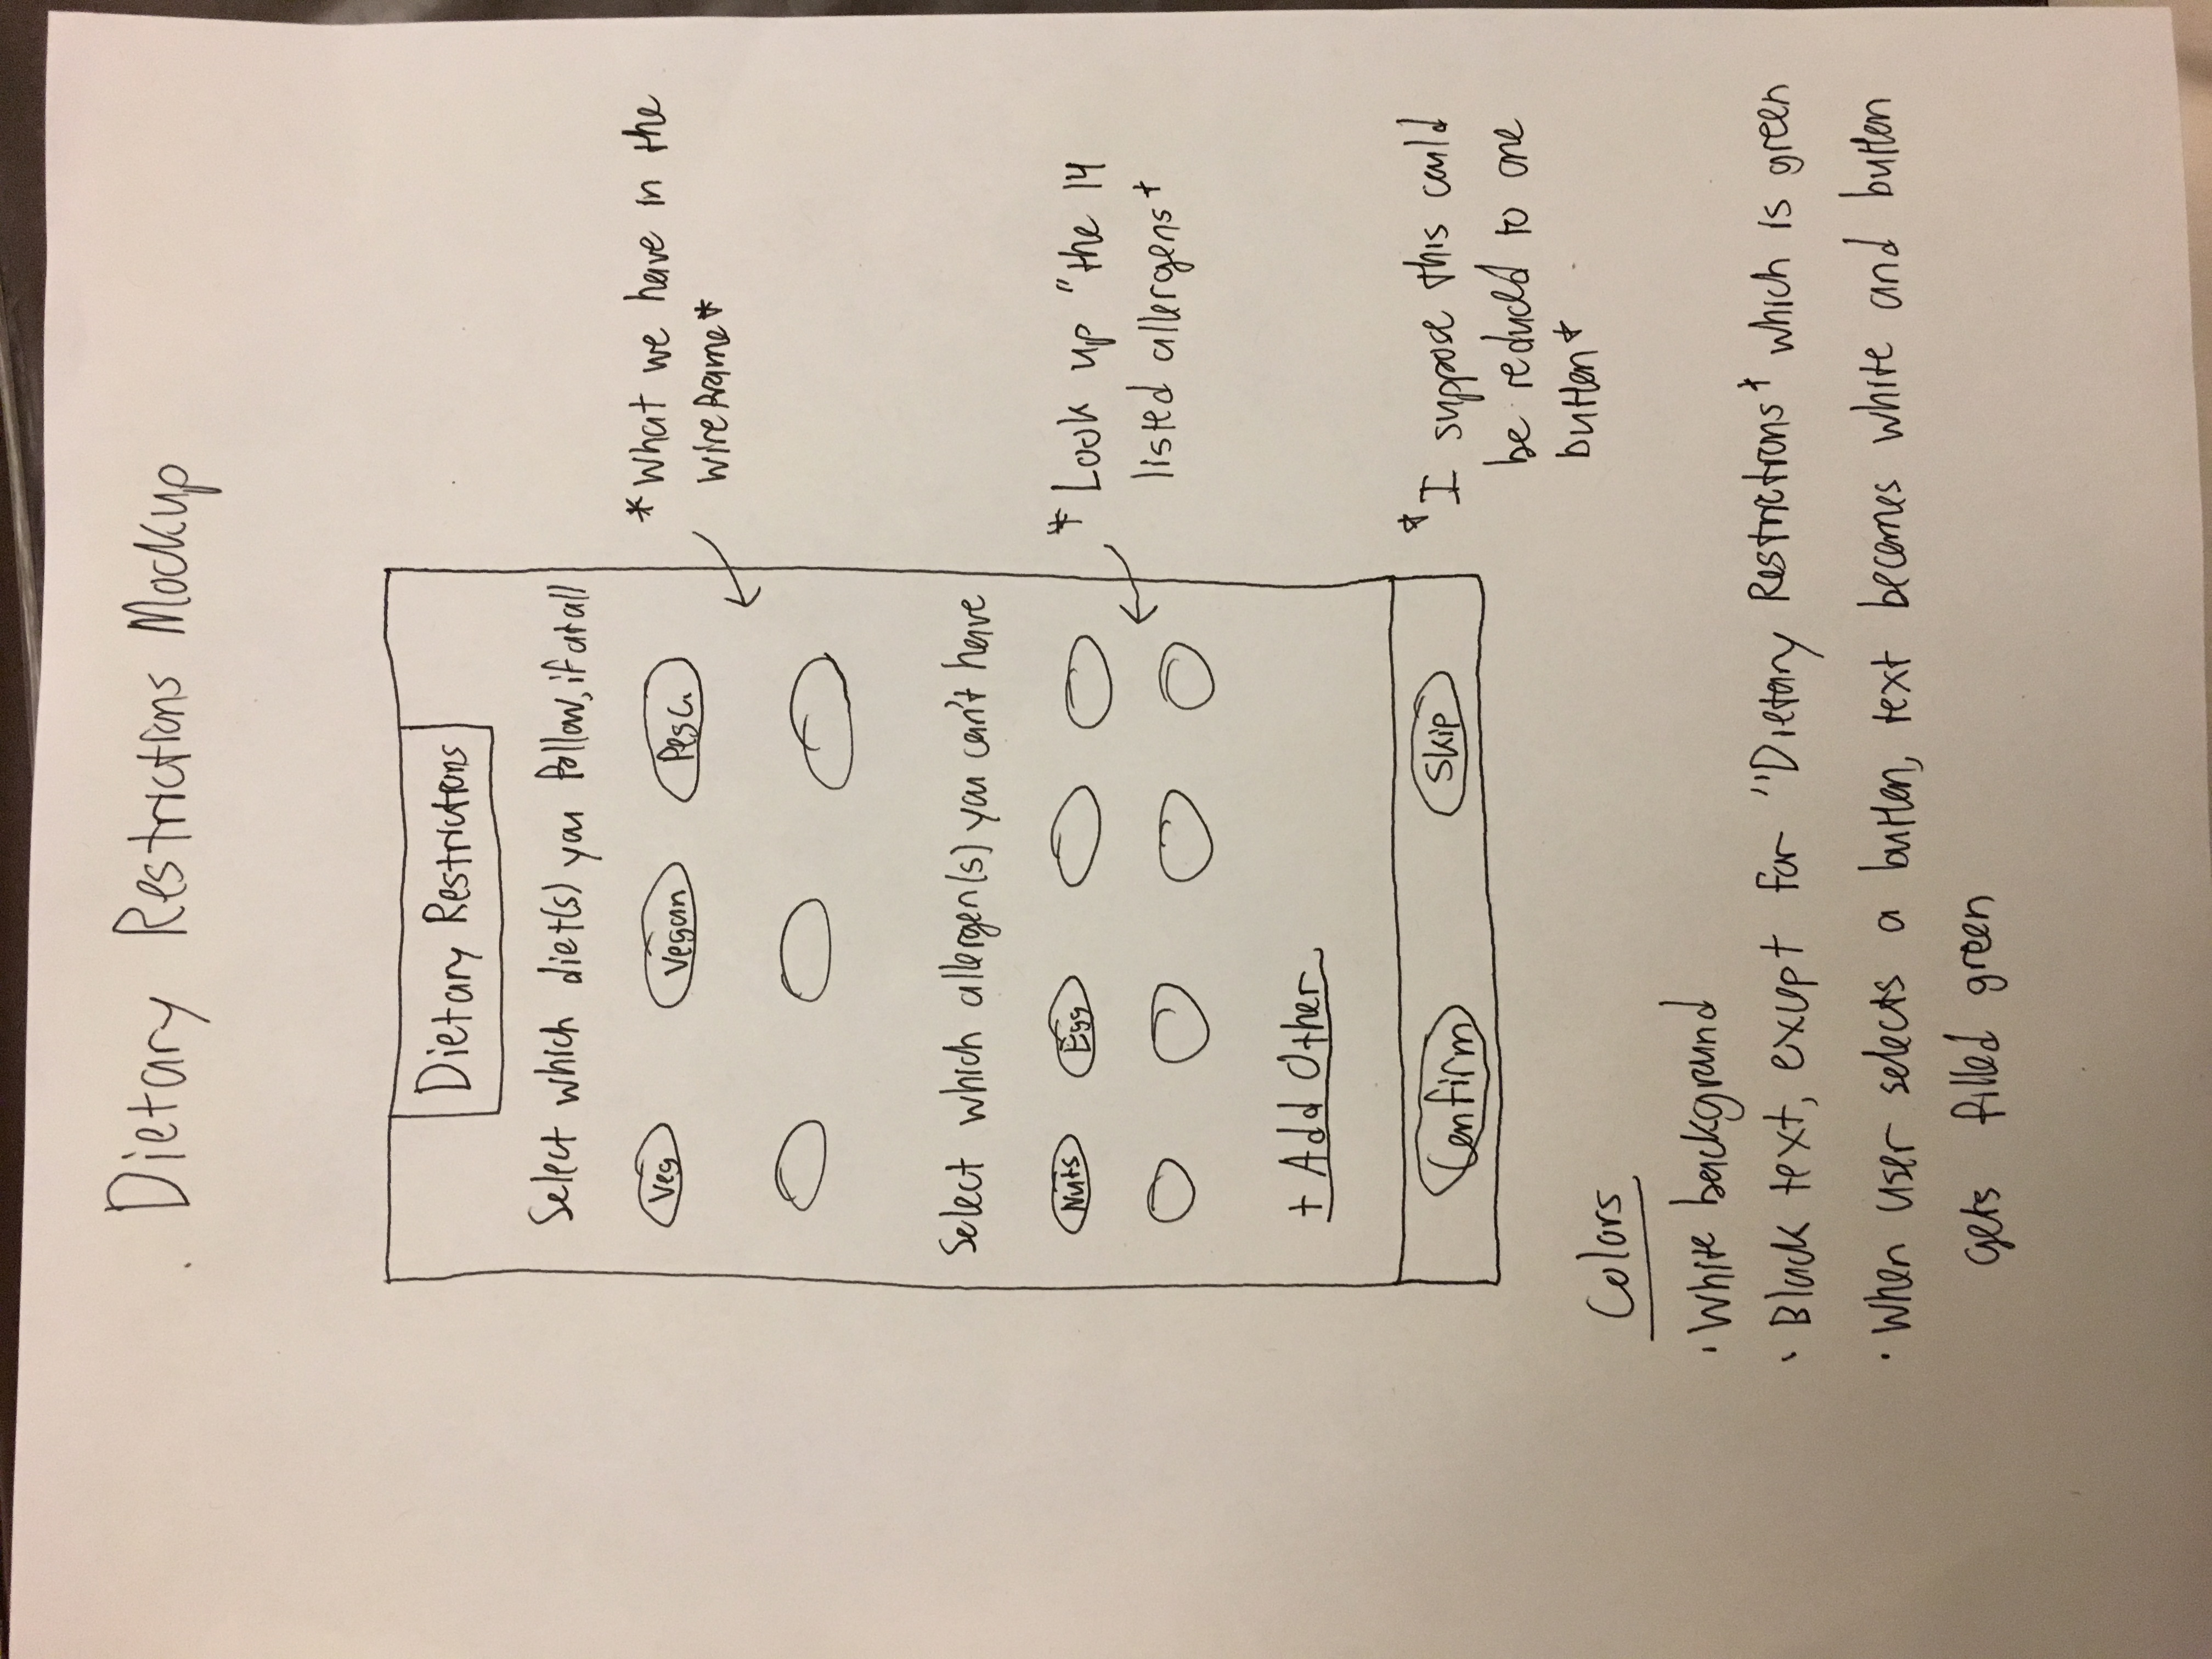 Dietary Restrictions Mockup
Dietary Restrictions
Select which diet(s) you follow, if at all
Veg Vegan Pesc.
*What we have in the
wireframe*
Select which allergen(s) you can't have
Nuts Egg
*Look up "the 14
listed allergens"
+ Add Other
Confirm Skip
*I suppose this could
be reduced to one
button*
Colors
· White background
· Black text, except for "Dietary Restrictions" which is green
· When user selects a button, text becomes white and button
gets filled green